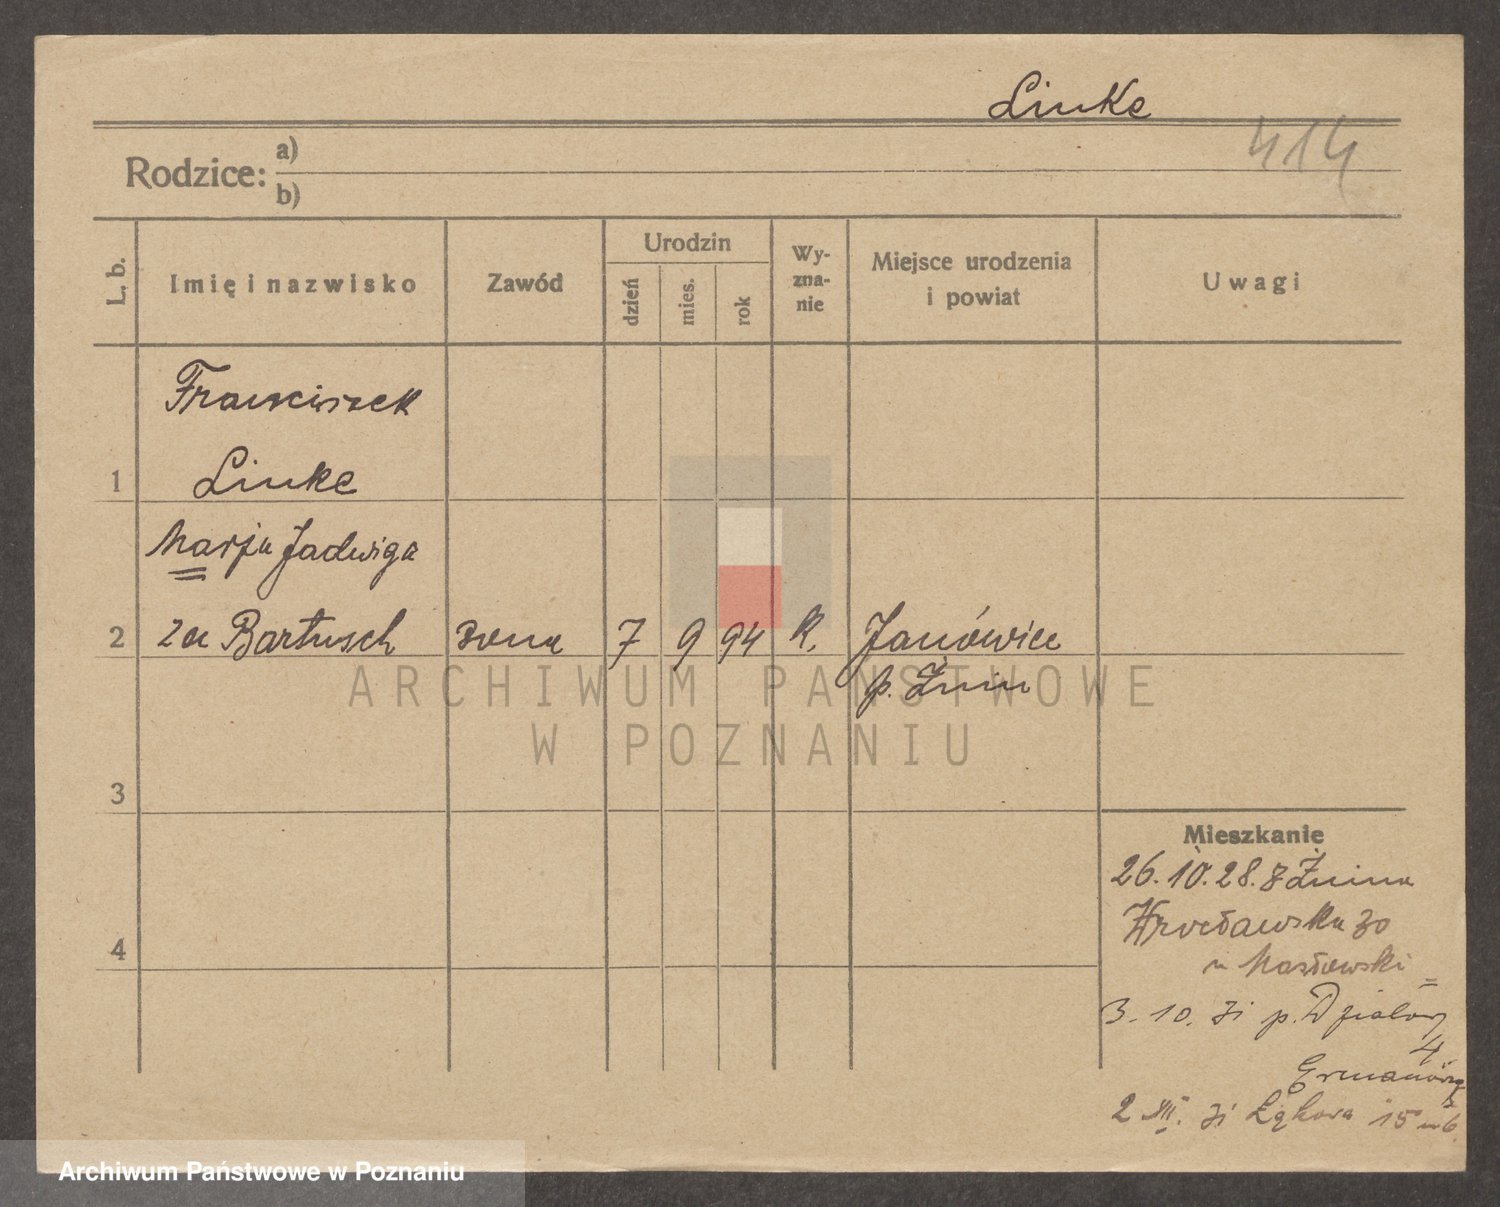 Linke
414
Rodzice: a)
b)
L. b.
Imię i nazwisko
Zawód
Urodzin
dzień
mies.
rok
Wy-
zna-
nie
Miejsce urodzenia
i powiat
Uwagi
Franciszek
1 Linke
Marja Jadwiga
2 za Bartusch żona 7 9 94 K. Janówiec
p. Żnin
3
4
Mieszkanie
26.10.28. z Żnina
Wrocławska 30
Masłowski
3. 10. 31 p. Działowy
4
2 XII. 31 Łąkowa 15
ARCHIWUM PAŃSTWOWE
W POZNANIU
Archiwum Państwowe w Poznaniu